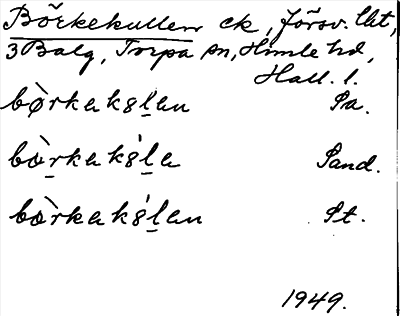 Börkekullen ck, försv. lht,
3 Balg, Torpa sn, Himle hd,
Hall. l.
bø̀rkakşl̠an Pa.
bœ̀rkakşl̠a Sand.
bœ̀rkakşl̠an St.
1949.